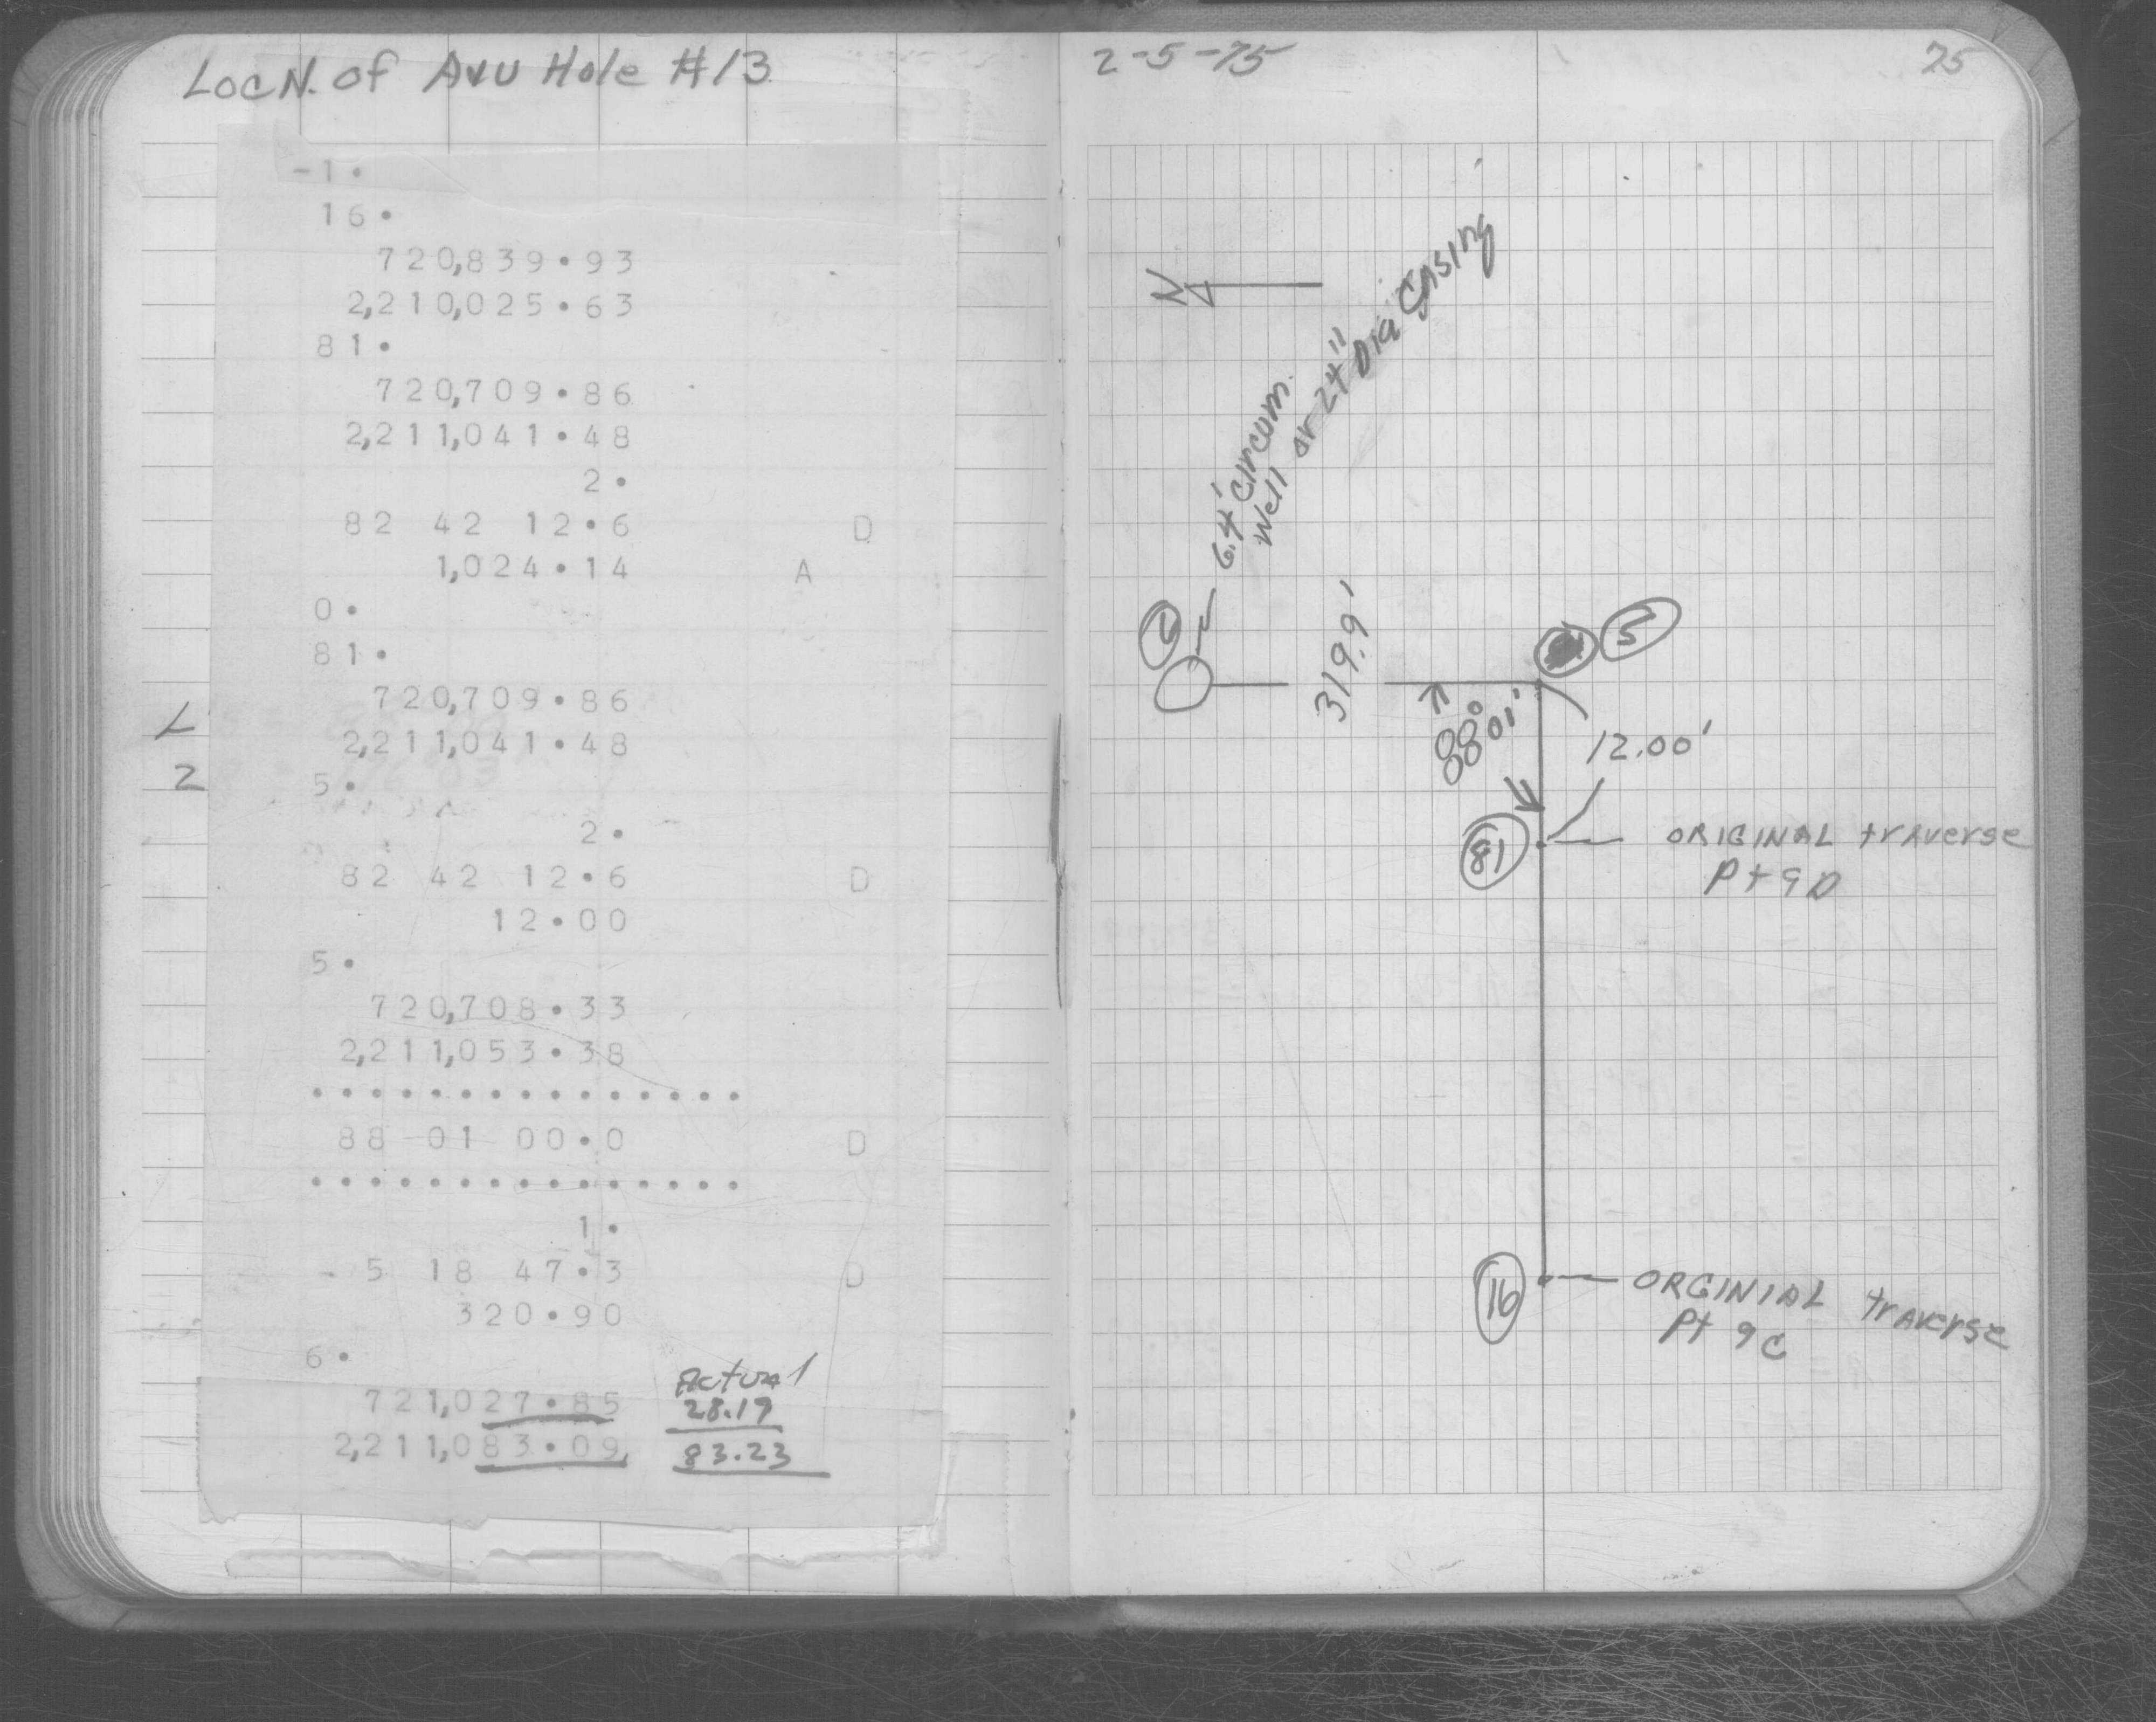 LocN. of Avu Hole #13
-1.
16.
720,839.93
2,210,025.63
81.
720,709.86
2,211,041.48
2.
82 42 12.6 D
1,024.14 A
0.
81.
720,709.86
2,211,041.48
5.
2.
82 42 12.6 D
12.00
5.
720,708.33
2,211,053.38
...............
88 01 00.0 D
...............
1.
- 5 18 47.3 D
320.90
6.
721,027.85
2,211,083.09
Actual
28.19
83.23
L
2
2-5-75
75
N
6.4' circum.
Well or 24" Dia Casing
6
319.9'
5
88° 01'
12.00'
81
ORIGINAL traverse
Pt 9D
16
ORGINIAL traverse
Pt 9C